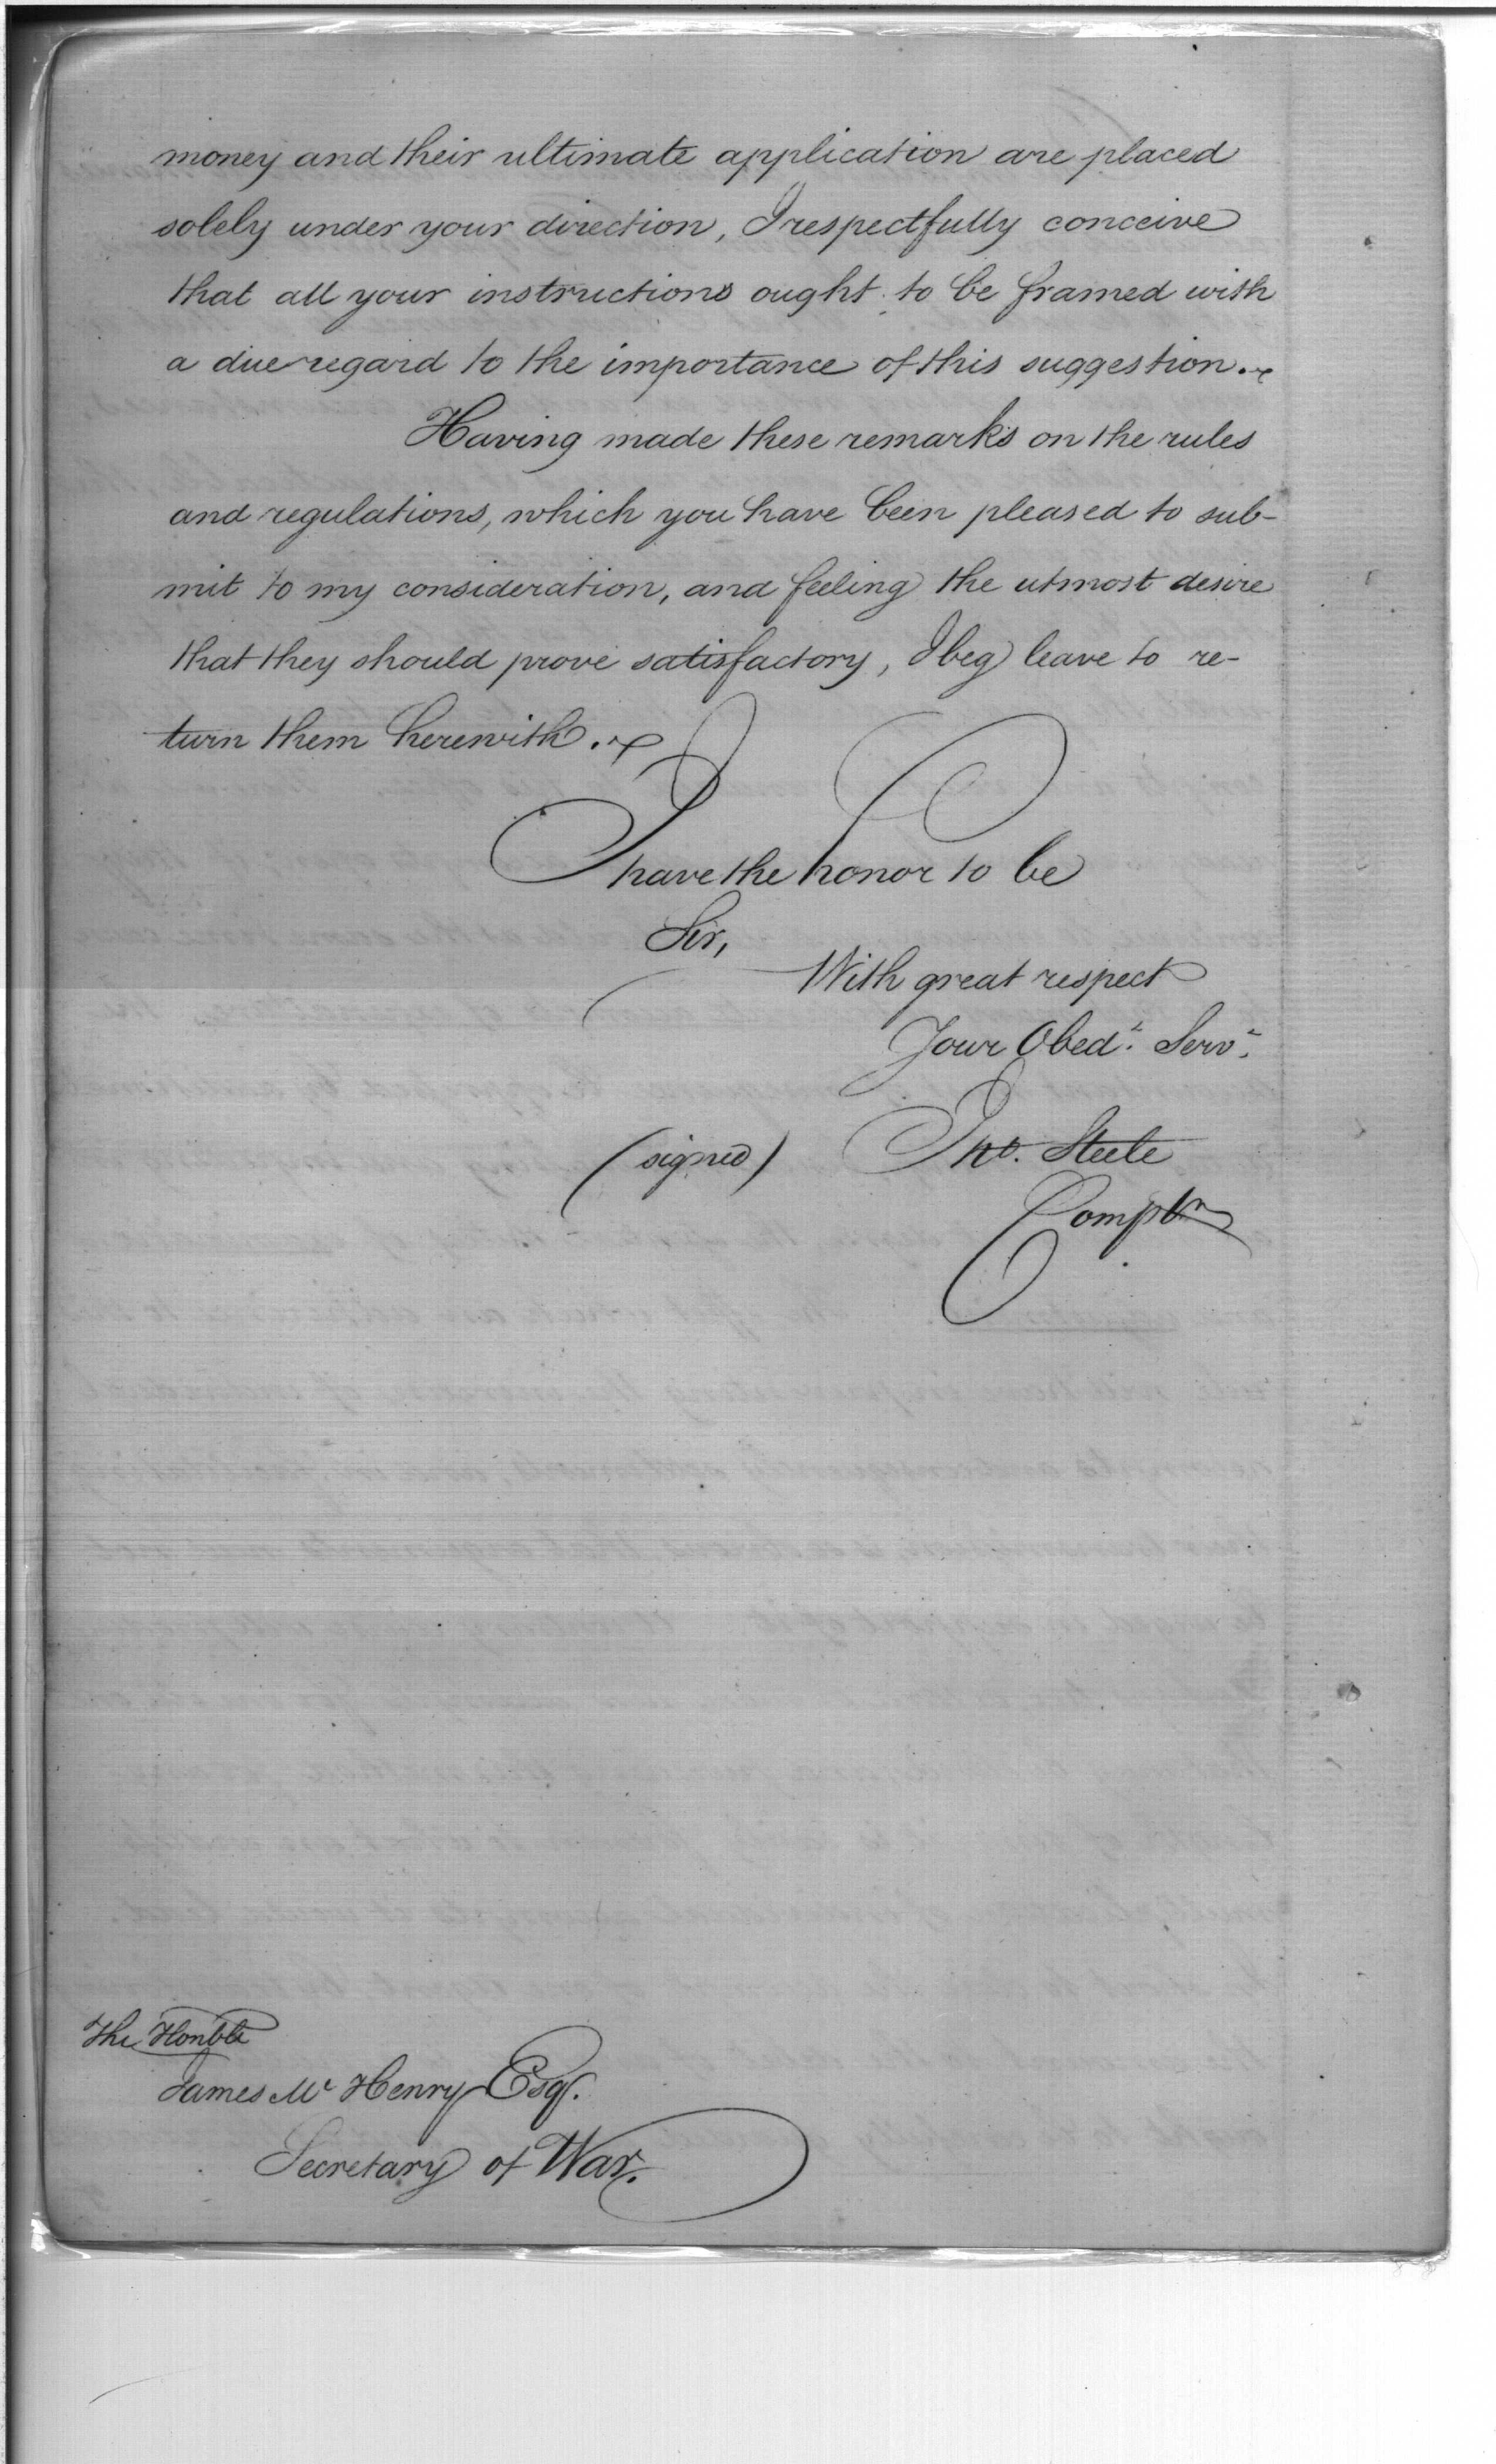 money and their ultimate application are placed
solely under your direction, I respectfully conceive
that all your instructions ought to be framed with
a due regard to the importance of this suggestion.
Having made these remarks on the rules
and regulations, which you have been pleased to sub-
mit to my consideration, and feeling the utmost desire
that they should prove satisfactory, I beg leave to re-
turn them herewith.
I have the honor to be
Sir,
With great respect
Your Obedt. Servt.
(signed) Jno. Steele
Comptr
The Honble
James Mc Henry Esqr.
Secretary of War.